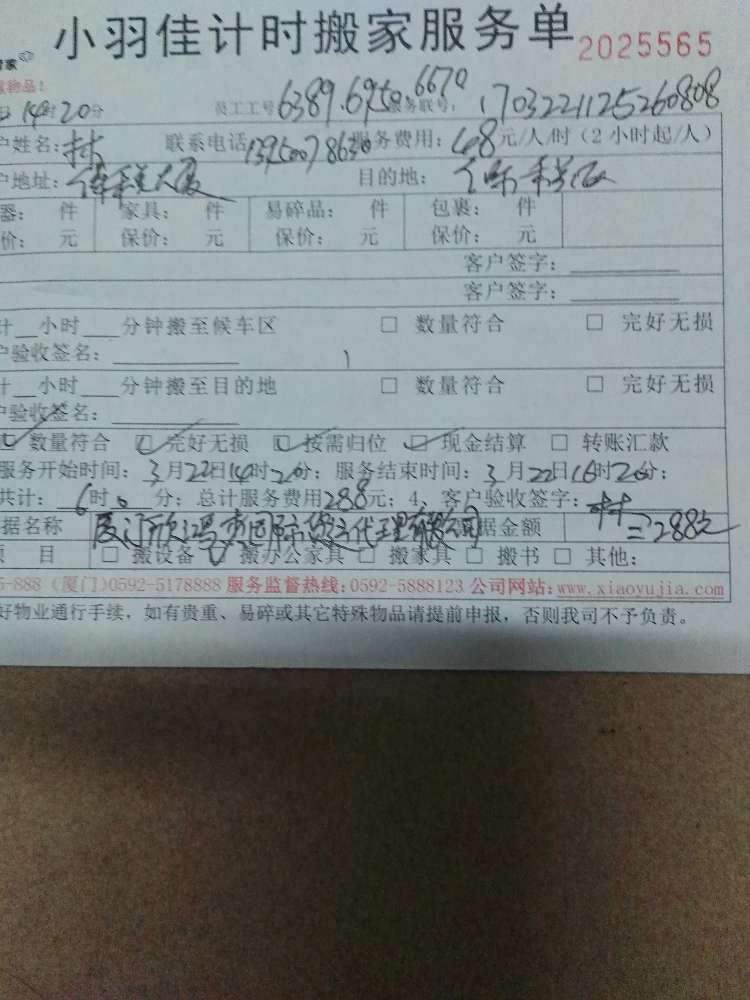 小羽佳计时搬家服务单 2025565
14时20分 员工工号6389.6950.6670 服务联号：1703221125260808
户姓名：林 联系电话 服务费用：48元/人/时（2小时起/人）
户地址： 大厦 目的地：
器： 件 家具： 件 易碎品： 件 包裹： 件
价： 元 保价： 元 保价： 元 保价： 元
客户签字：
客户签字：
计__小时___分钟搬至候车区 □ 数量符合 □ 完好无损
户验收签名：
计__小时___分钟搬至目的地 □ 数量符合 □ 完好无损
户验收签名：
数量符合 □ 完好无损 □ 按需归位 □ 现金结算 □ 转账汇款
服务开始时间：3月22日14时20分；服务结束时间：3月22日16时20分；
共计：6时0分；总计服务费用288元；4、客户验收签字：林
据名称 厦门欣鸿 国际货运代理有限公司 据金额 =288元
项 目 □ 搬设备 □ 搬办公家具 □ 搬家具 □ 搬书 □ 其他：
5-888（厦门）0592-5178888 服务监督热线：0592-5888123 公司网站：www.xiaoyujia.com
好物业通行手续，如有贵重、易碎或其它特殊物品请提前申报，否则我司不予负责。